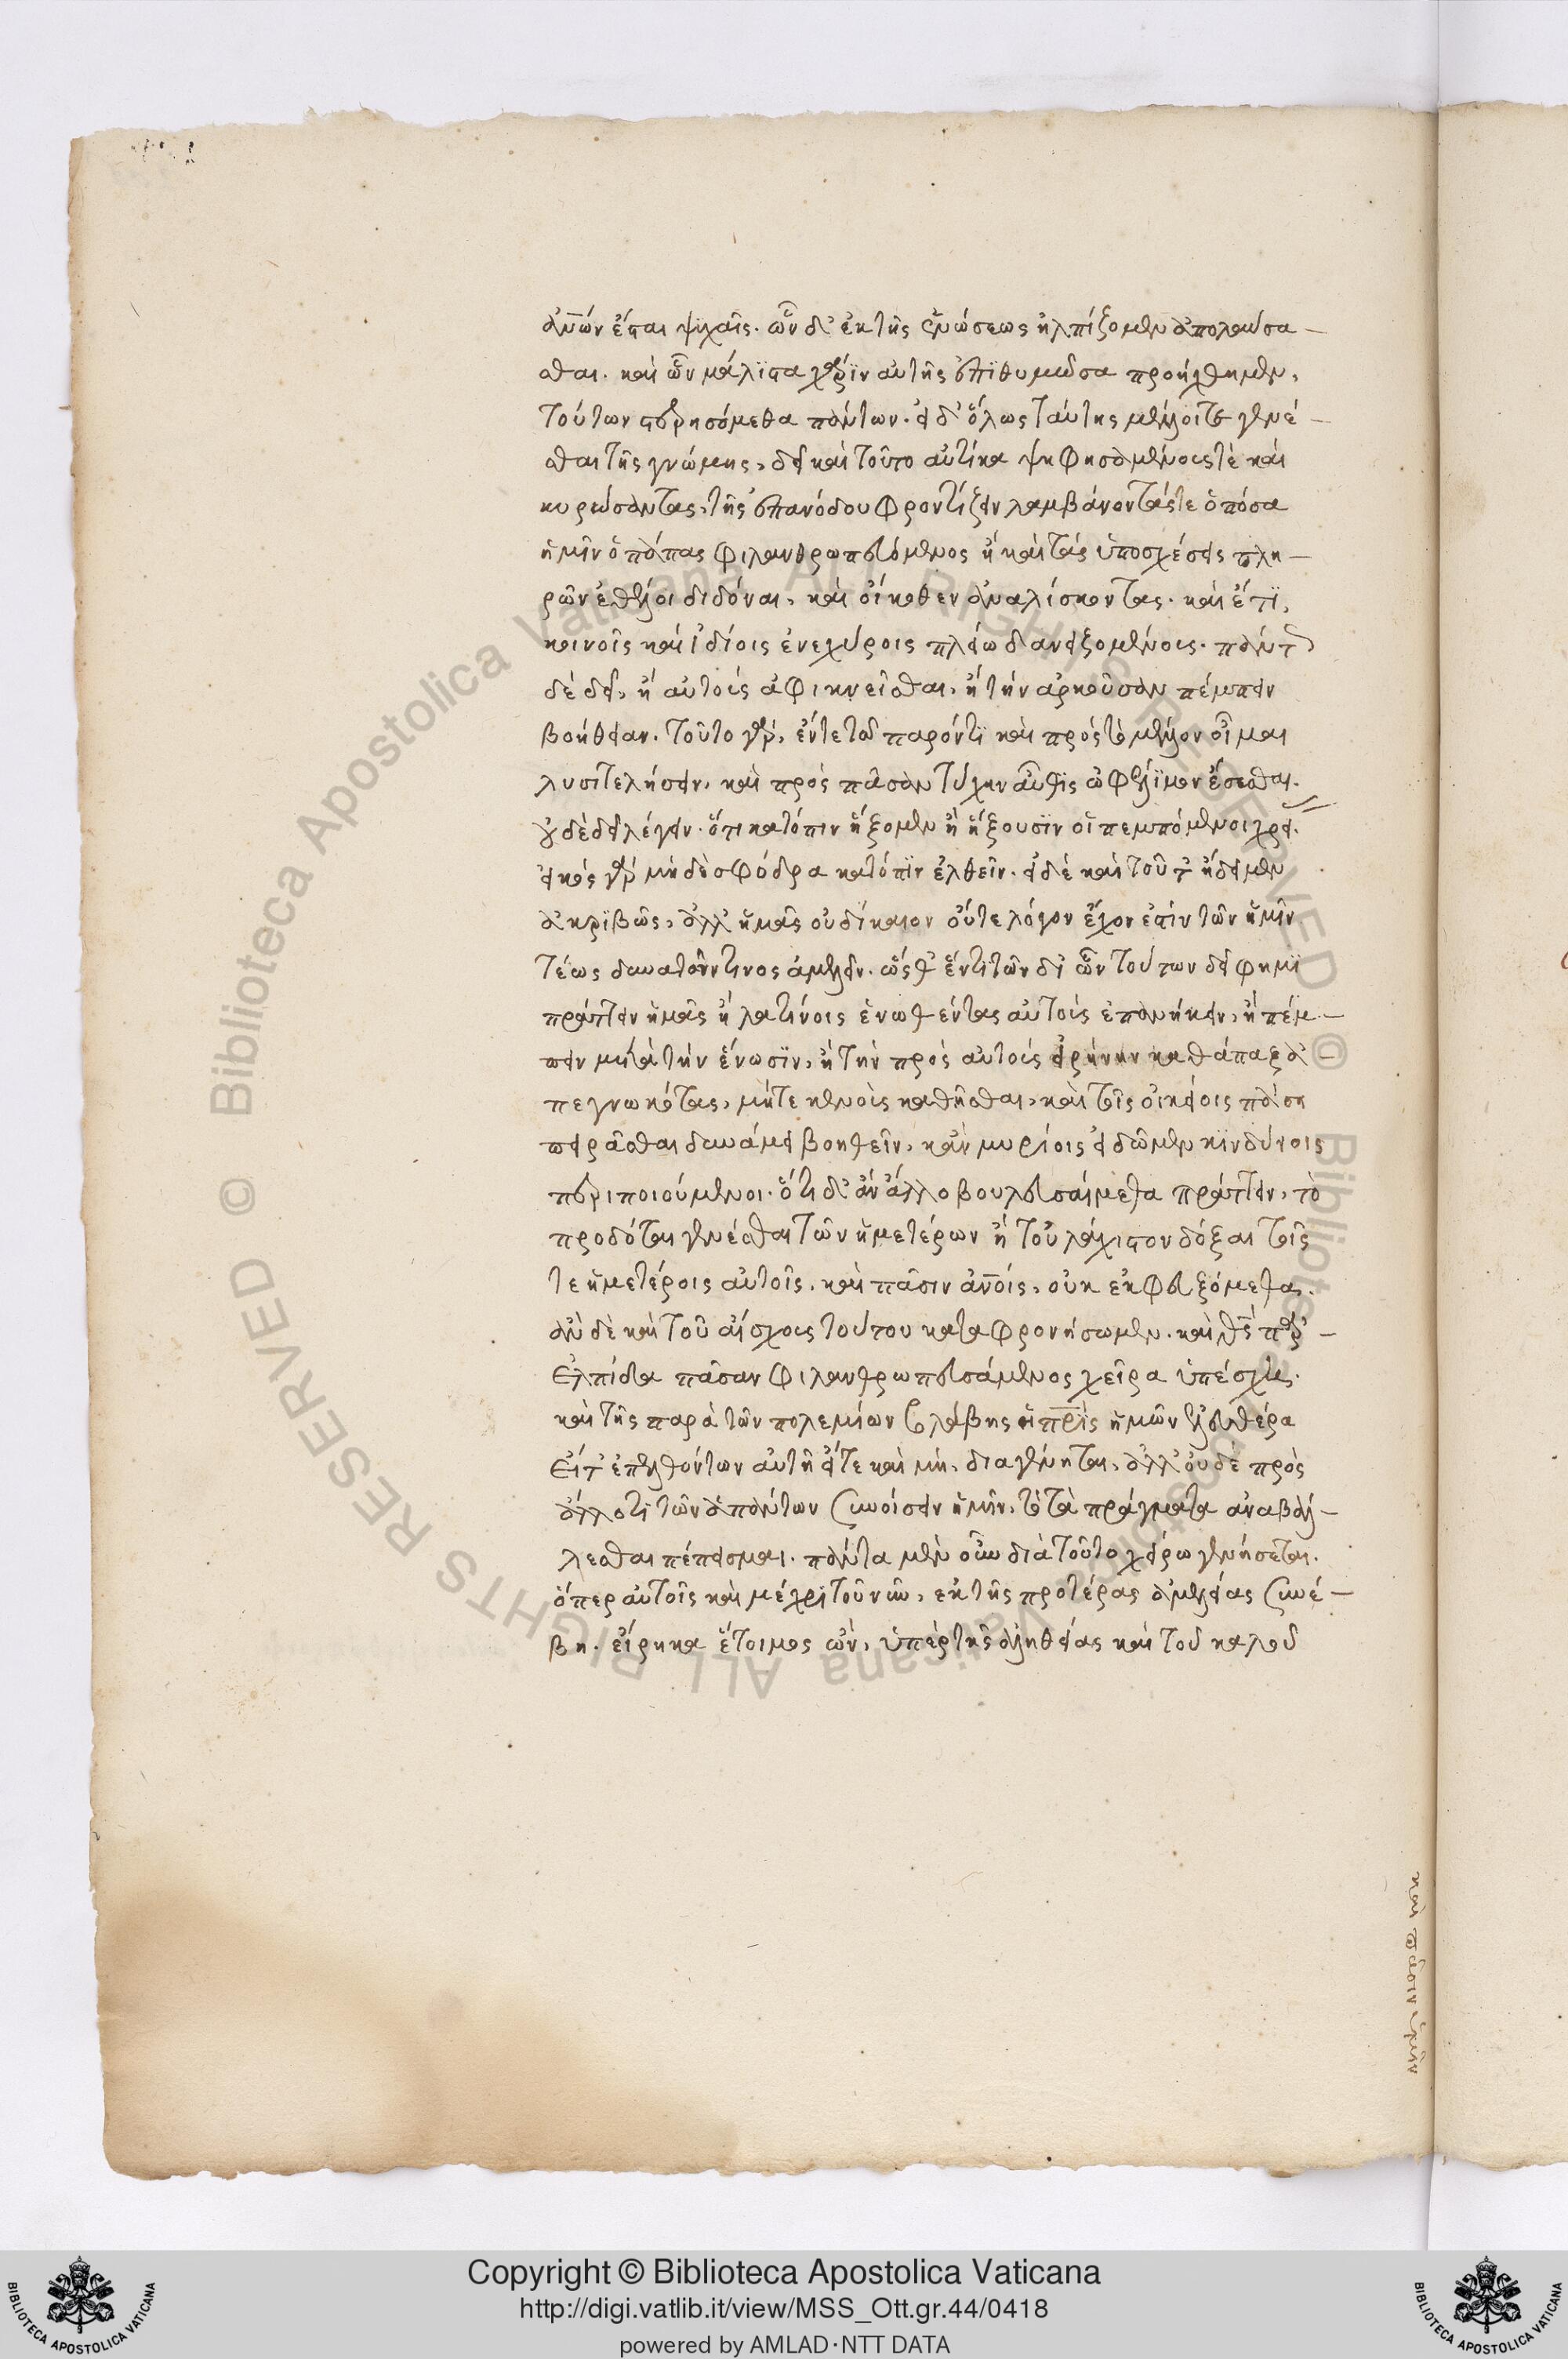 ἀν̅ών ἔσται ψυχαῖς. ὧν δ' ἐκ τῆς ἑνώσεως ἠλπίζομεν ἀπολαύσα—
σθαι. καὶ ὧν μάλιστα χάριν αὐτῆς ἐπιθυμοῦσα προήχθημεν,
τούτων στερησόμεθα πάντων. εἰ δ' ὅλως ταύτης μέλλοιτε γενέ—
σθαι τῆς γνώμης, δεῖ καὶ τοῦτο αὐτίκα ψηφησαμένους τὲ καὶ
κυρώσαντας, τῆς ἐπανόδου φροντίζειν λαμβάνοντάς τε ὁπόσα
ἡμῖν ὁ πάπας φιλανθρωπευόμενος ἢ καὶ τὰς ὑποσχέσεις πλη—
ρῶν ἐθέλοι διδόναι, καὶ οἴκοθεν ἀναλίσκοντας. καὶ ἔτι,
κοινοῖς καὶ ἰδίοις ἐνεχύροις πλείω δανειζομένους. πάντ
δὲ δεῖ, ἢ αὐτοὺς ἀφικνεῖσθαι, ἢ τὴν ἀρκοῦσαν πέμπειν
βοήθειαν. τοῦτο γάρ, ἔν τε τῶ παρόντι καὶ πρὸς τὸ μέλλον οἶμαι
λυσιτελήσειν, καὶ πρὸς πᾶσαν τύχην αὖθις ὠφέλιμον ἔσεσθαι.
οὐδὲ δεῖ λέγειν. ὅτι κατόπιν ἥξομεν ἢ ἥξουσιν οἱ πεμπόμενοι χρεί.
εἰκὸς γὰρ μηδὲ σφόδρα κατόπιν ἐλθεῖν. εἰ δὲ καὶ τοῦτ ἤδειμεν
ἀκριβῶς, ἀλλ' ἡμᾶς οὐ δίκαιον οὔτε λόγον ἔχον ἐστὶν τῶν ἡμῖν
τέως δυνατῶν τινος ἀμελεῖν. ὥσθ' ἕν τι τῶν δι' ὧν τούτων δεῖ φημὶ
πράττειν ἡμᾶς ἢ λατίνοις ἑνωθέντας αὐτοὺς ἐπανήκειν, ἢ πέμ—
πειν μετὰ τὴν ἕνωσιν, ἢ τὴν πρὸς αὐτοὺς εἰρήνην καθάπαξ ἀ—
πεγνωκότας, μήτε κενοὺς καθῆσθαι, καὶ τοῖς οἰκείοις πάση
πειρᾶσθαι δυνάμει βοηθεῖν, κἂν μυρίοις εἰδῶμεν κινδύνοις
περιποιούμενοι. ὅτι δ' ἂν ἄλλο βουλευσαίμεθα πράττειν, τὸ
προδόται γενέσθαι τῶν ἡμετέρων ἢ τοὐλάχιστον δόξαι τοῖς
τε ἡμετέροις αὐτοῖς. καὶ πᾶσιν ἀν̅οις, οὐκ ἐκφευξόμεθα.
ἂν δὲ καὶ τοῦ αἴσχους τούτου καταφρονήσωμεν. καὶ θ̅ς παρ'—
ἐλπίδα πᾶσαν φιλανθρωπευσάμενος χεῖρα ὑπέσχε.
καὶ τῆς παρὰ τῶν πολεμίων βλάβης ἡ π̅ρις ἡμῶν ἐλευθέρα
εἴτ' ἐπελθόντων αὐτῆ εἴτε καὶ μὴ, διαγένηται, ἀλλ' οὐδὲ πρὸς
ἄλλό τι τῶν ἁπάντων συνοίσειν ἡμῖν, τὸ τὰ πράγματα ἀναβάλ—
λεσθαι πέπεισμαι. πάντα μὲν οὖν διὰ τοῦτο χείρω γενήσεται.
ὅπερ αὐτοῖς καὶ μέχρι τοῦ νῦν, ἐκ τῆς προτέρας ἀμελείας συνέ—
βη. εἴρηκα ἕτοιμος ὢν, ὑπὲρ τῆς ἀληθείας καὶ τοῦ καλοῦ
καὶ πᾶσιν
Copyright © Biblioteca Apostolica Vaticana
http://digi.vatlib.it/view/MSS_Ott.gr.44/0418
powered by AMLAD·NTT DATA
BIBLIOTECA APOSTOLICA VATICANA
BIBLIOTECA APOSTOLICA VATICANA
© Biblioteca Apostolica Vaticana ALL RIGHTS RESERVED © Biblioteca Apostolica Vaticana ALL RIGHTS RESERVED